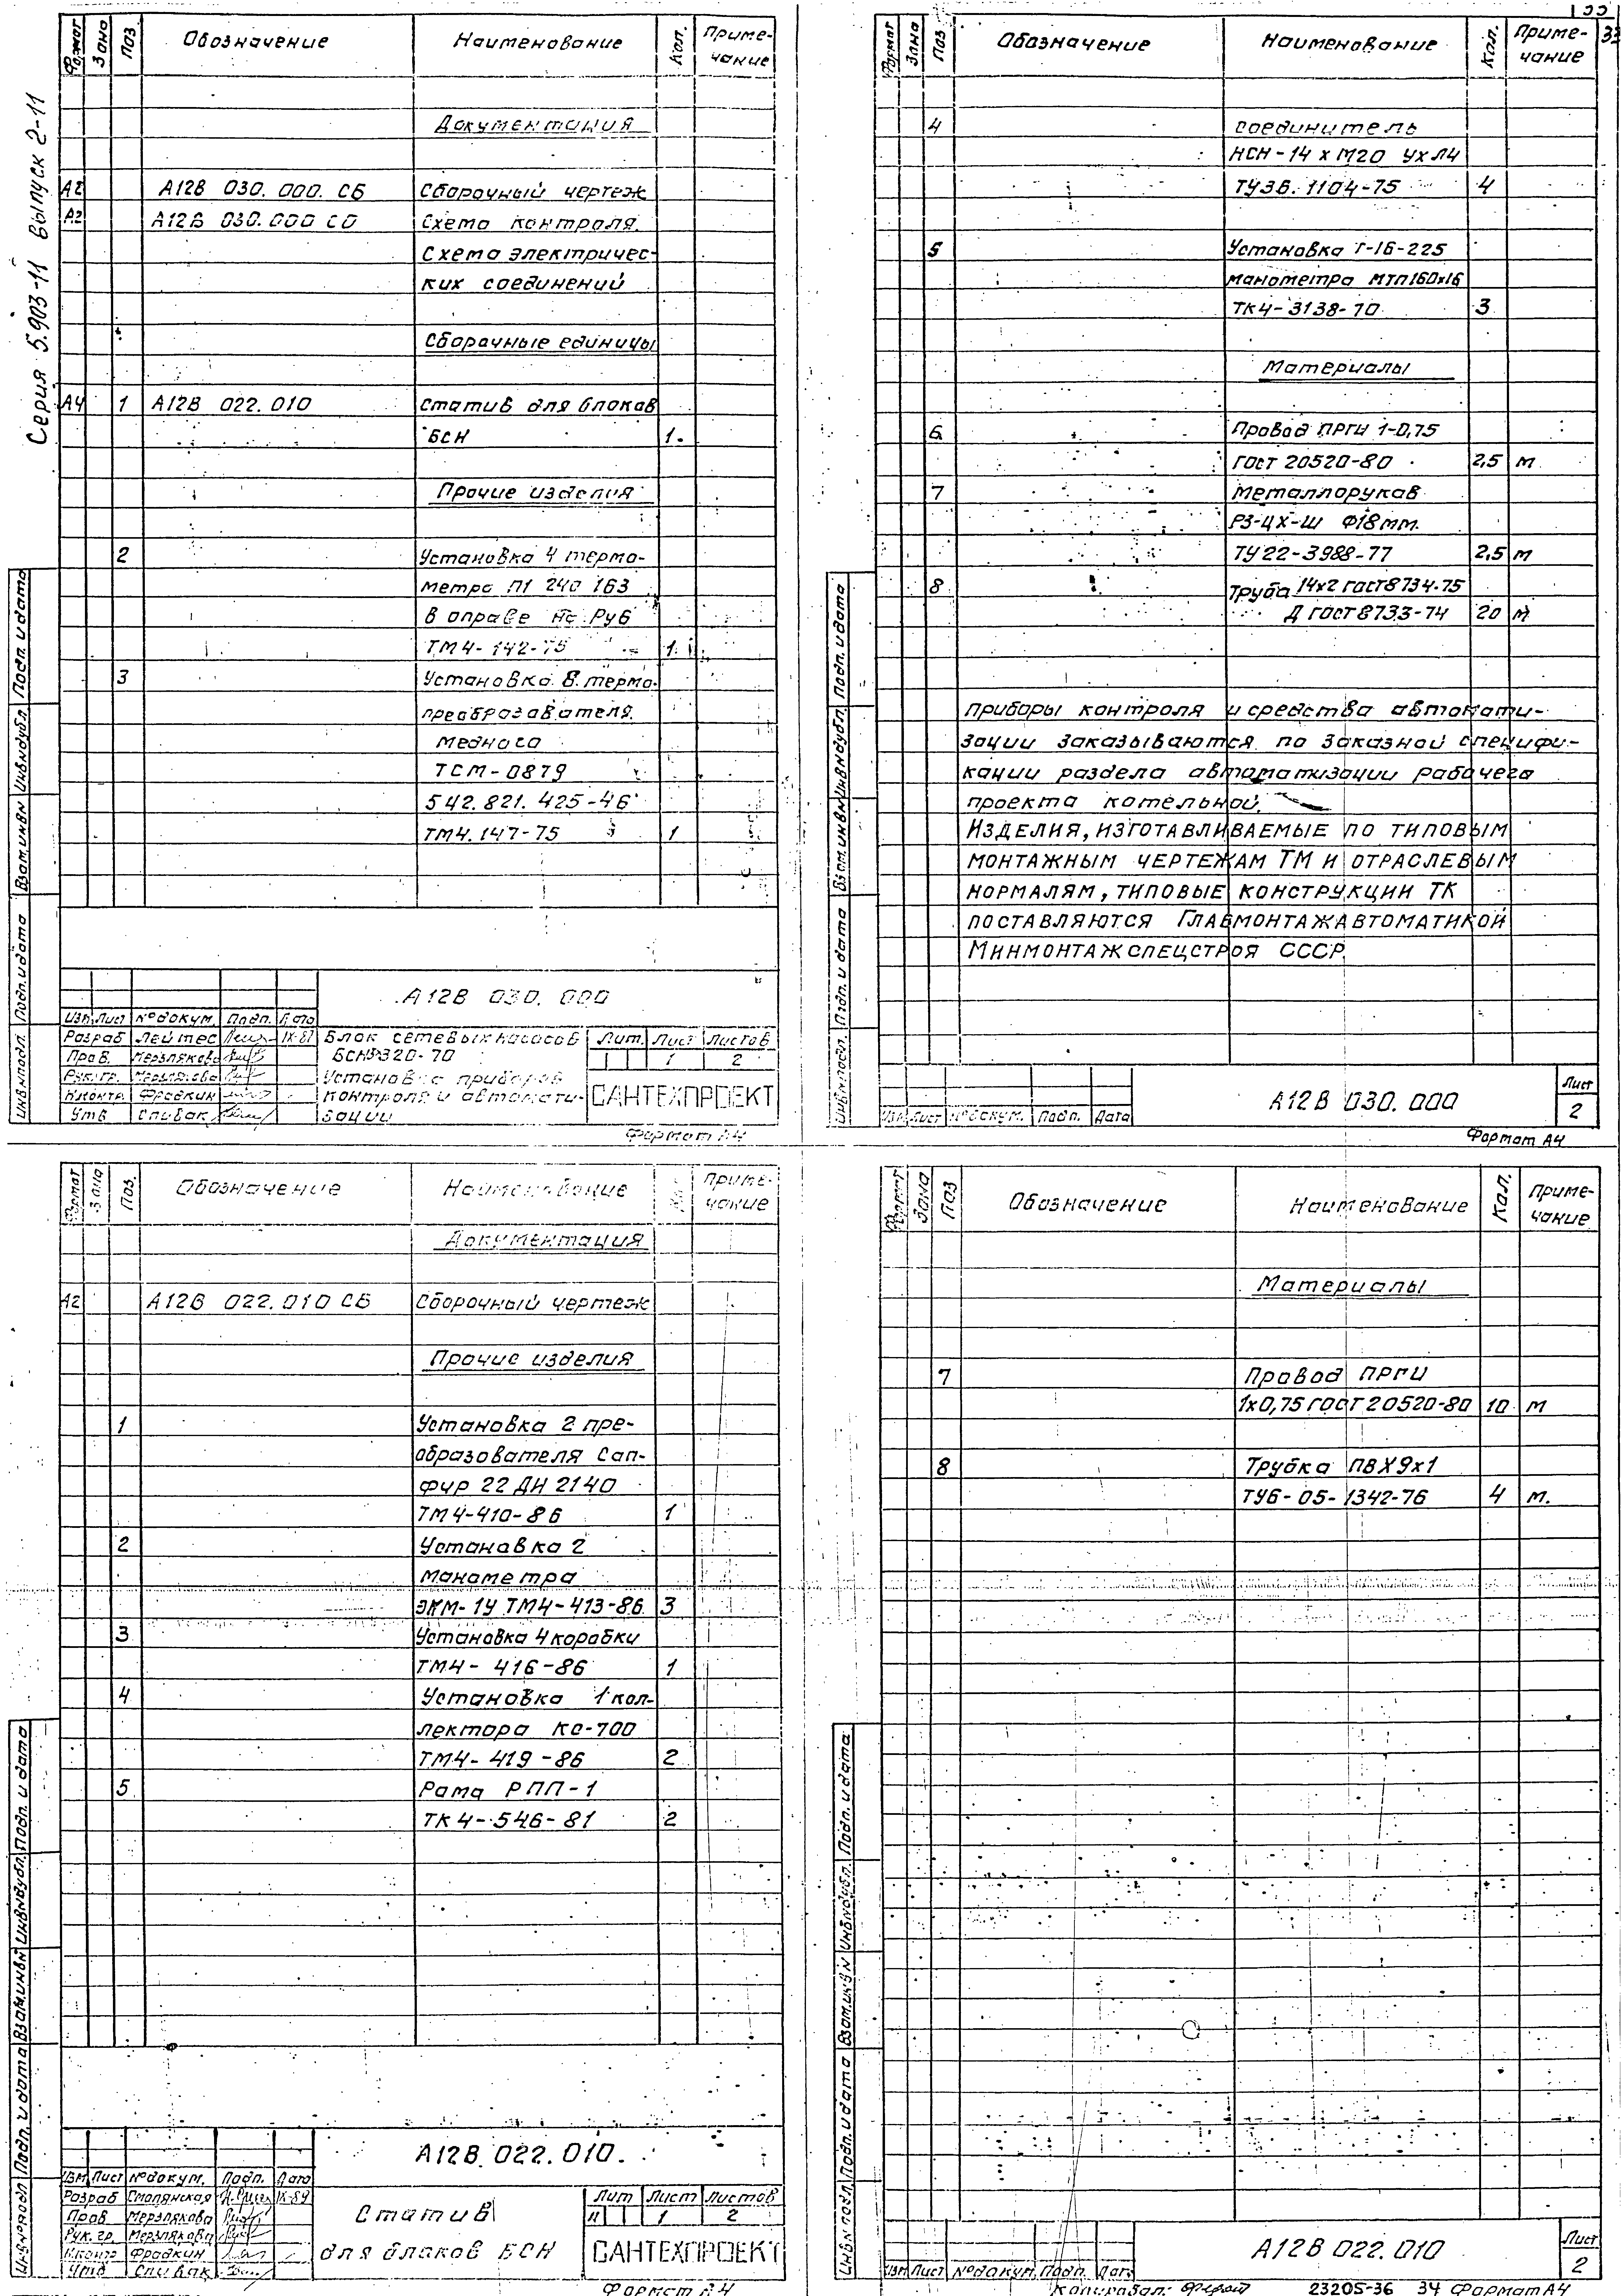 Серия 5.903-11 Выпуск 2-11
Формат Зона Поз. Обозначение Наименование Кол. Приме-
чание
Документация
А2 А12В 030.000.СБ Сборочный чертеж
А2 А12В 030.000 СО Схема контроля.
Схема электричес-
ких соединений
Сборочные единицы
А4 1 А12В 022.010 Статив для блоков
БСН 1
Прочие изделия
2 Установка 4 термо-
метра П1 240 163
в оправе на Ру6
ТМ4-142-75 1
3 Установка 8 термо-
преобразователя
медного
ТСМ-0879
542.821.425-46
ТМ4.147-75 1
А12В 030.000
Изм. Лист №докум. Подп. Дата
Разраб Лейтес
Пров. Мерзлякова
Рук.гр. Мерзлякова
Н.контр. Фрадкин
Утв Спивак
Блок сетевых насосов
БСН 320-70
Установка приборов
контроля и автомати-
зации
Лит. Лист Листов
1 2
САНТЕХПРОЕКТ
Формат А4
Инв.№подл. Подп. и дата Взам.инв.№ Инв.№дубл. Подп. и дата
33
Формат Зона Поз Обозначение Наименование Кол. Приме-
чание
4 Соединитель
НСН-14 х М20 УХЛ4
ТУ36.1104-75 4
5 Установка Т-16-225
манометра МТП160х16
ТК4-3138-70 3
Материалы
6 Провод ПРГИ 1-0,75
ГОСТ 20520-80 2,5 м
7 Металлорукав
РЗ-ЦХ-Ш Ф18мм.
ТУ22-3988-77 2,5 м
8 Труба 14х2 ГОСТ8734-75
Д ГОСТ8733-74 20 м
Приборы контроля и средства автомати-
зации заказываются по заказной специфи-
кации раздела автоматизации рабочего
проекта котельной.
Изделия, изготавливаемые по типовым
монтажным чертежам ТМ и отраслевым
нормалям, типовые конструкции ТК
поставляются Главмонтажавтоматикой
Минмонтажспецстроя СССР.
Изм Лист №докум. Подп. Дата
А12В 030.000
Лист
2
Формат А4
Инв.№подл. Подп. и дата Взам.инв.№ Инв.№дубл. Подп. и дата
Формат Зона Поз. Обозначение Наименование Приме-
чание
Документация
А2 А12В 022.010 СБ Сборочный чертеж
Прочие изделия
1 Установка 2 пре-
образователя Сап-
фир 22 ДИ 2140
ТМ4-410-86 1
2 Установка 2
манометра
ЭКМ-1У ТМ4-413-86 3
3 Установка 4 коробки
ТМ4-416-86 1
4 Установка 1 кол-
лектора КС-700
ТМ4-419-86 2
5 Рама РПП-1
ТК4-546-81 2
А12В 022.010
Изм Лист №докум. Подп. Дата
Разраб Смолянская
Пров Мерзлякова
Рук.гр. Мерзлякова
Н.контр Фрадкин
Утв Спивак
Статив
для блоков БСН
Лит Лист Листов
И 1 2
САНТЕХПРОЕКТ
Формат А4
Инв.№подл Подп. и дата Взам.инв.№ Инв.№дубл. Подп. и дата
Формат Зона Поз Обозначение Наименование Кол. Приме-
чание
Материалы
7 Провод ПРГИ
1х0,75 ГОСТ 20520-80 10 м
8 Трубка ПВХ9х1
ТУ6-05-1342-76 4 м.
Изм Лист №докум. Подп. Дата
А12В 022.010
Лист
2
Инв.№подл. Подп. и дата Взам.инв.№ Инв.№дубл. Подп. и дата
Копировал: 23205-36 34 Формат А4